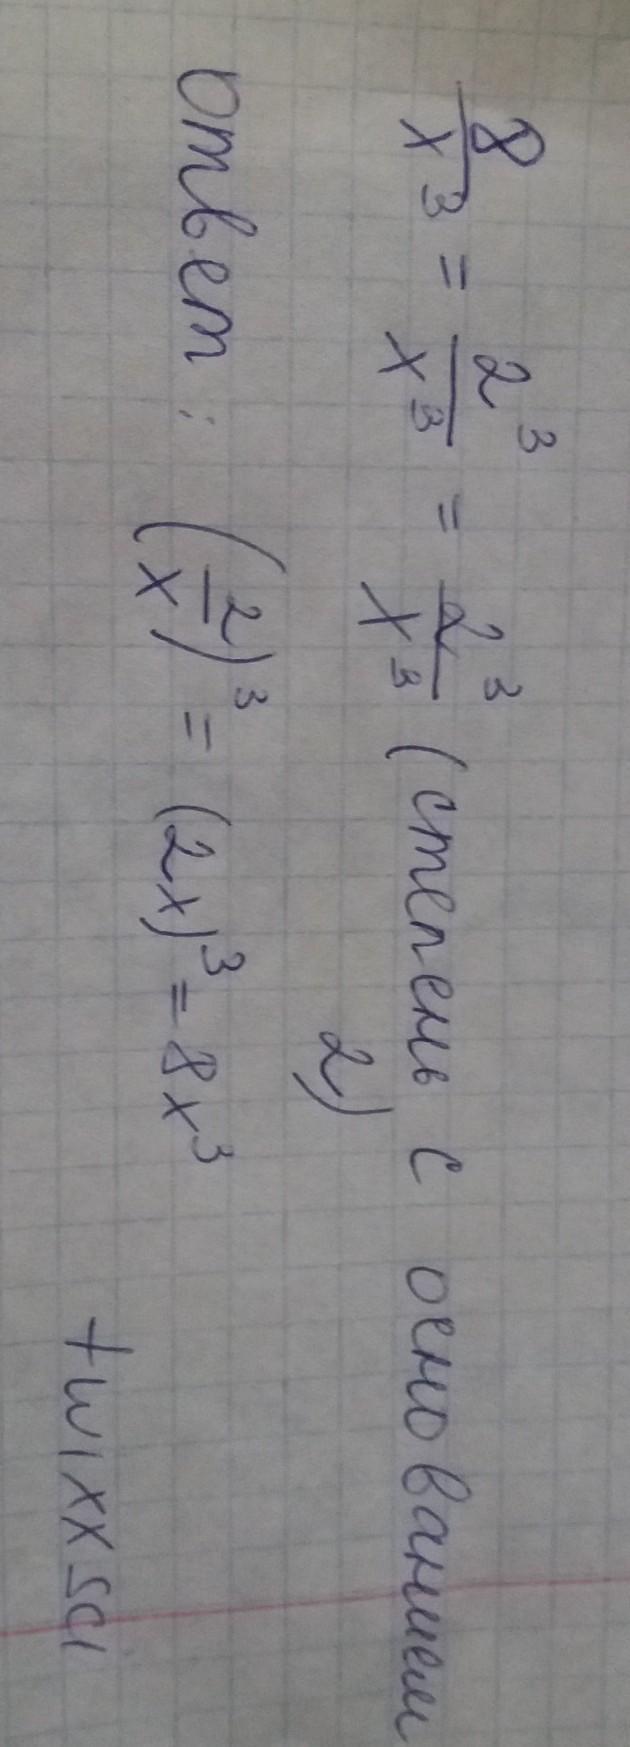 8/x³ = 2³/x³ = 2³/x³ (степень с основанием
2)
Ответ: (2/x)³ = (2x)³ = 8x³
twixxsci